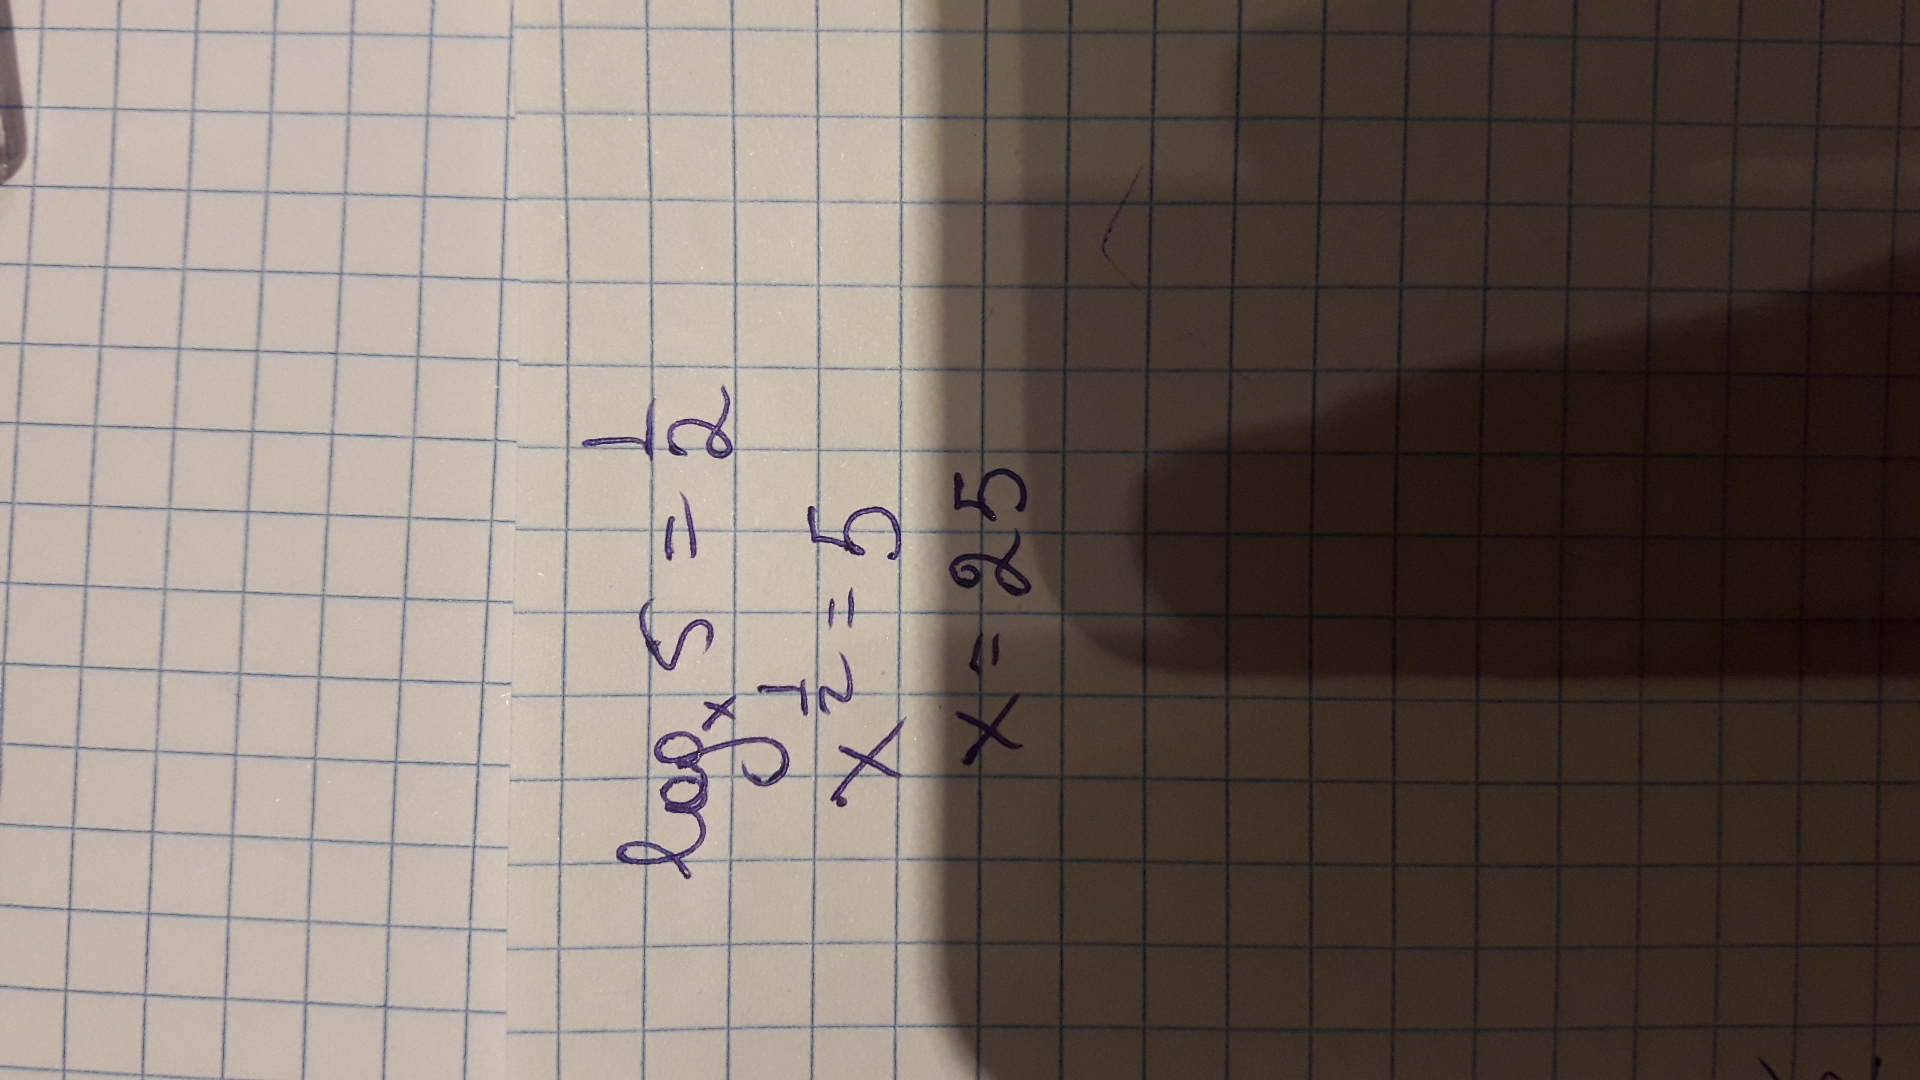 log_x 5 = 1/2
x^(1/2) = 5
x = 25